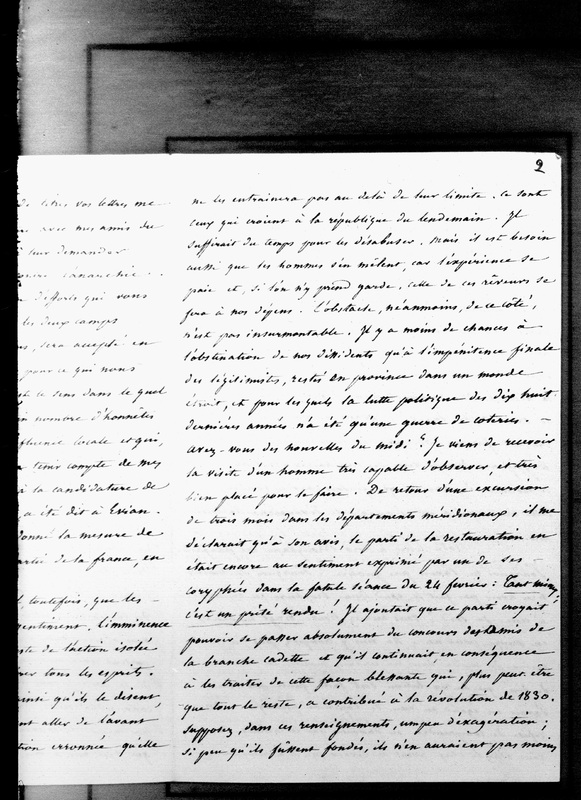 2
de titres vos lettres me
avec mes amis du
leur demander
contre l'anarchie.
d'efforts qui vous
les deux camps
, sera accepté en
pour ce qui nous
est le sens dans le quel
nombre d'honnêtes
influence locale et qui,
tenir compte de mes
à la candidature de
a été dit à Evian.
donné la mesure de
partie de la france, en
toutefois, que les
l'imminence
de l'action isolée
tous les esprits.
ainsi qu'ils le disent,
aller de l'avant
erronnée qu'elle
ne les entrainera pas au delà de leur limite. Ce sont
ceux qui croient à la république du lendemain. Il
suffirait du temps pour les désabuser. Mais il est besoin
aussi que les hommes s'en mêlent, car l'expérience se
paie et, si l'on n'y prend garde, celle de ces rêveurs se
fera à nos dépens. L'obstacle, néanmoins, de ce côté,
n'est pas insurmontable. Il y a moins de chances à
l'obstination de nos dissidents qu'à l'impénitence finale
des légitimistes, restés en province dans un monde
étroit, et pour les quels la lutte politique des dix huit
dernières années n'a été qu'une guerre de coteries. -
avez-vous des nouvelles du midi ? Je viens de recevoir
la visite d'un homme très capable d'observer, et très
bien placé pour le faire. De retour d'une excursion
de trois mois dans les départements méridionaux, il me
déclarait qu'à son avis, le parti de la restauration en
était encore au sentiment exprimé par un de ses -
coryphées dans la fatale séance du 24 février : Tant mieux,
c'est un prêté rendu ! Il ajoutait que ce parti croyait
pouvoir se passer absolument du concours des amis de
la branche cadette et qu'il continuait, en conséquence
à les traiter de cette façon blessante qui, plus peut-être
que tout le reste, a contribué à la révolution de 1830.
Supposez, dans ces renseignements, un peu d'exagération ;
si peu qu'ils fussent fondés, ils n'en auraient pas moins